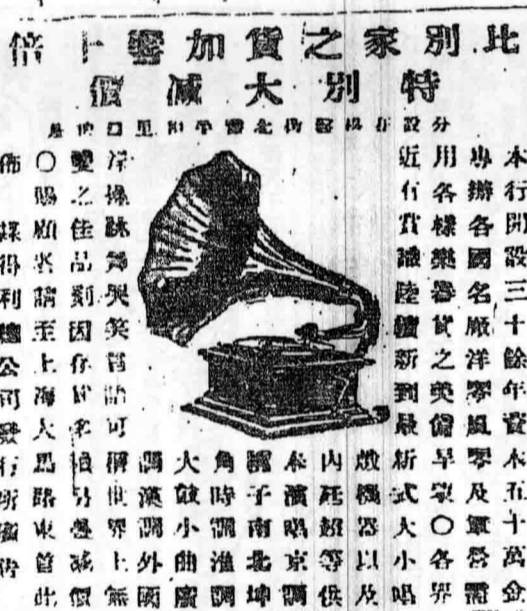 比別家之貨加響上倍
特別大減價
分設
本行開設三十餘年資本五十萬金
專辦各國名廠洋琴風琴及軍營需
用各樣樂器貨之英備早蒙〇各界
近有賞識陸續新到最新式大小唱
戲機器以及
内等供
本演唱京調
子南北坤
角時調淮調
大鼓小曲廣
調漢調外國
操跳舞與笑言語可稱世界上無
雙之佳品刻因存貨減價
〇賜顧者請至上海大馬路東首此
佈 謀得利總公司發行所